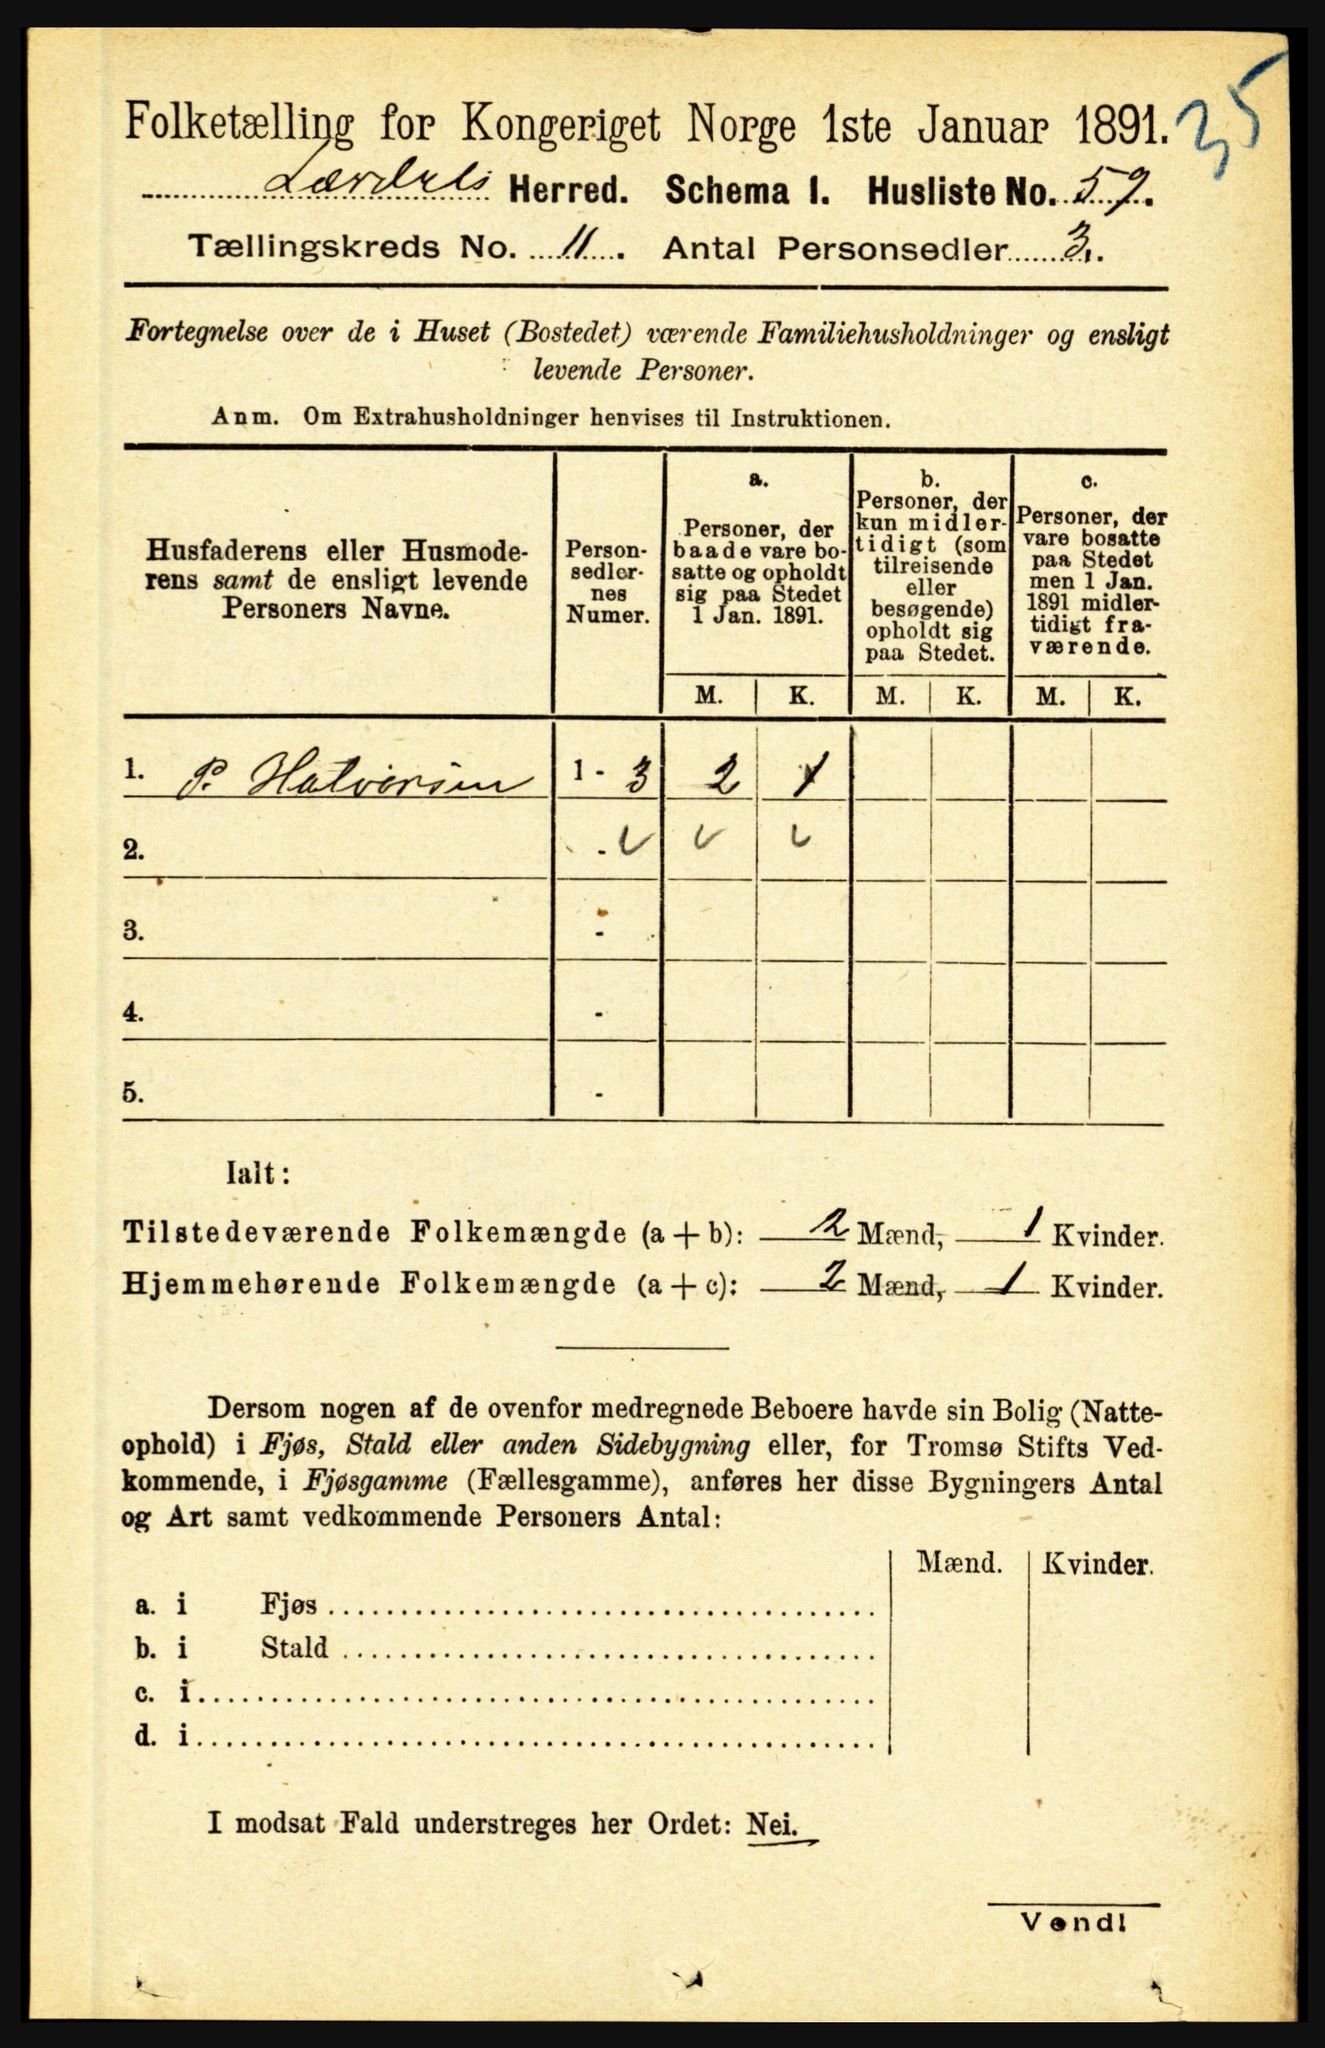 35
Folketælling for Kongeriget Norge 1ste Januar 1891.
Lærdals Herred. Schema I. Husliste No. 59.
Tællingskreds No. 11. Antal Personsedler 3.
Fortegnelse over de i Huset (Bostedet) værende Familiehusholdninger og ensligt
levende Personer.
Anm. Om Extrahusholdninger henvises til Instruktionen.
Husfaderens eller Husmode-
rens samt de ensligt levende
Personers Navne.
Person-
sedler-
nes
Numer.
a.
Personer, der
baade vare bo-
satte og opholdt
sig paa Stedet
1 Jan. 1891.
b.
Personer, der
kun midler-
tidigt (som
tilreisende
eller
besøgende)
opholdt sig
paa Stedet.
c.
Personer, der
vare bosatte
paa Stedet
men 1 Jan.
1891 midler-
tidigt fra-
værende.
M. K. M. K. M. K.
1. P. Halvorsen 1 - 3 2 1
2. -
3. -
4. -
5. -
Ialt:
Tilstedeværende Folkemængde (a + b): 2 Mænd, 1 Kvinder.
Hjemmehørende Folkemængde (a + c): 2 Mænd, 1 Kvinder.
Dersom nogen af de ovenfor medregnede Beboere havde sin Bolig (Natte-
ophold) i Fjøs, Stald eller anden Sidebygning eller, for Tromsø Stifts Ved-
kommende, i Fjøsgamme (Fællesgamme), anføres her disse Bygningers Antal
og Art samt vedkommende Personers Antal:
Mænd. Kvinder.
a. i Fjøs
b. i Stald
c. i
d. i
I modsat Fald understreges her Ordet: Nei.
Vend!